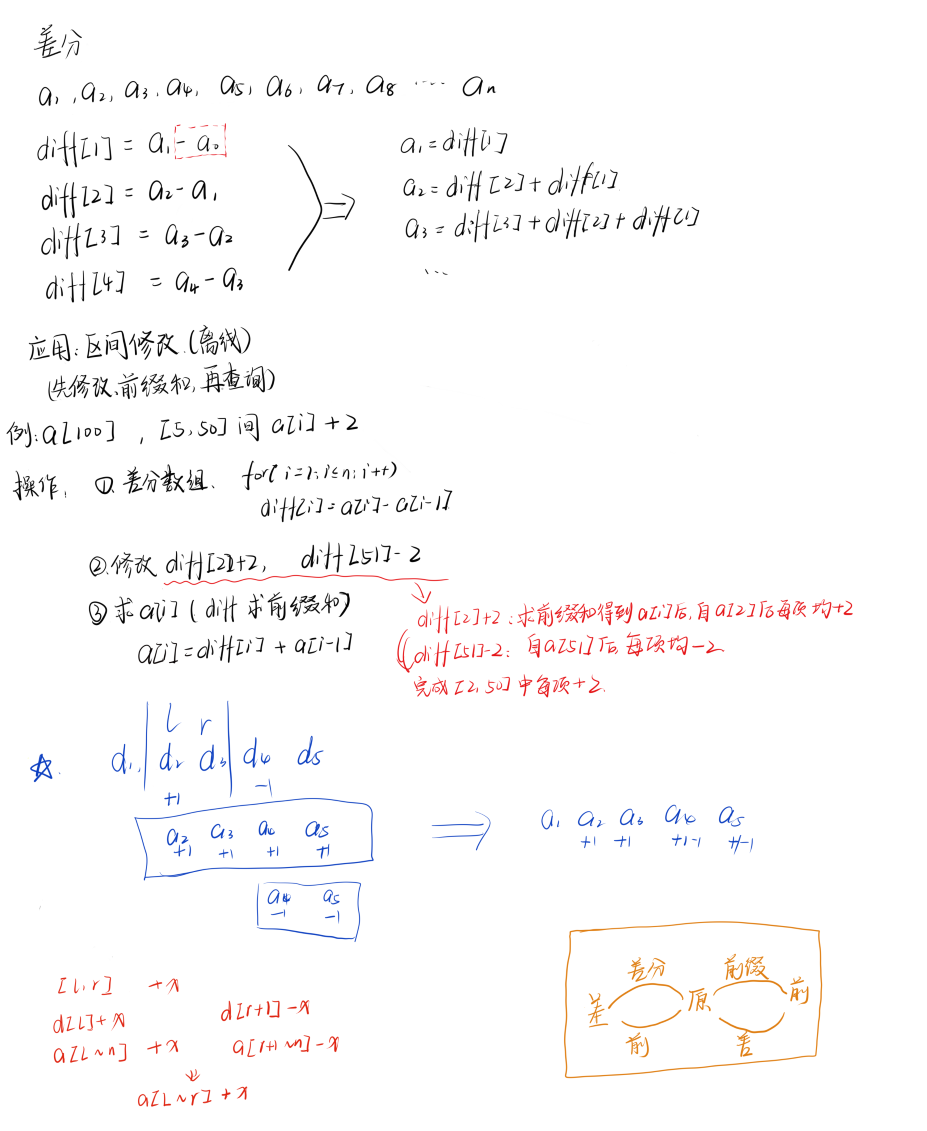 差分
a₁, a₂, a₃, a₄, a₅, a₆, a₇, a₈ ···· aₙ
diff[1] = a₁ - a₀
diff[2] = a₂ - a₁
diff[3] = a₃ - a₂
diff[4] = a₄ - a₃
⇒
a₁ = diff[1]
a₂ = diff[2] + diff[1]
a₃ = diff[3] + diff[2] + diff[1]
...
应用: 区间修改. (离线)
(先修改、前缀和, 再查询)
例: a[100] , [5, 50] 间 a[i] + 2
操作: ① 差分数组. for( i=1; i≤n; i++)
diff[i] = a[i] - a[i-1]
② 修改 diff[2]+2, diff[51]-2
③ 求 a[i] ( diff 求前缀和)
a[i] = diff[i] + a[i-1]
diff[2]+2: 求前缀和得到a[i]后, 自a[2]后每项均+2
diff[51]-2: 自a[51]后, 每项均-2
完成[2, 50]中每项+2.
l r
☆. d₁ d₂ d₃ d₄ d₅
+1 -1
a₂ a₃ a₄ a₅
+1 +1 +1 +1
a₄ a₅
-1 -1
⇒ a₁ a₂ a₃ a₄ a₅
+1 +1 +1-1 +1-1
[l, r] +x
d[L]+x d[r+1]-x
a[L~n] +x a[r+1~n]-x
⇓
a[L~r]+x
差分 前缀
差 原 前
前 差